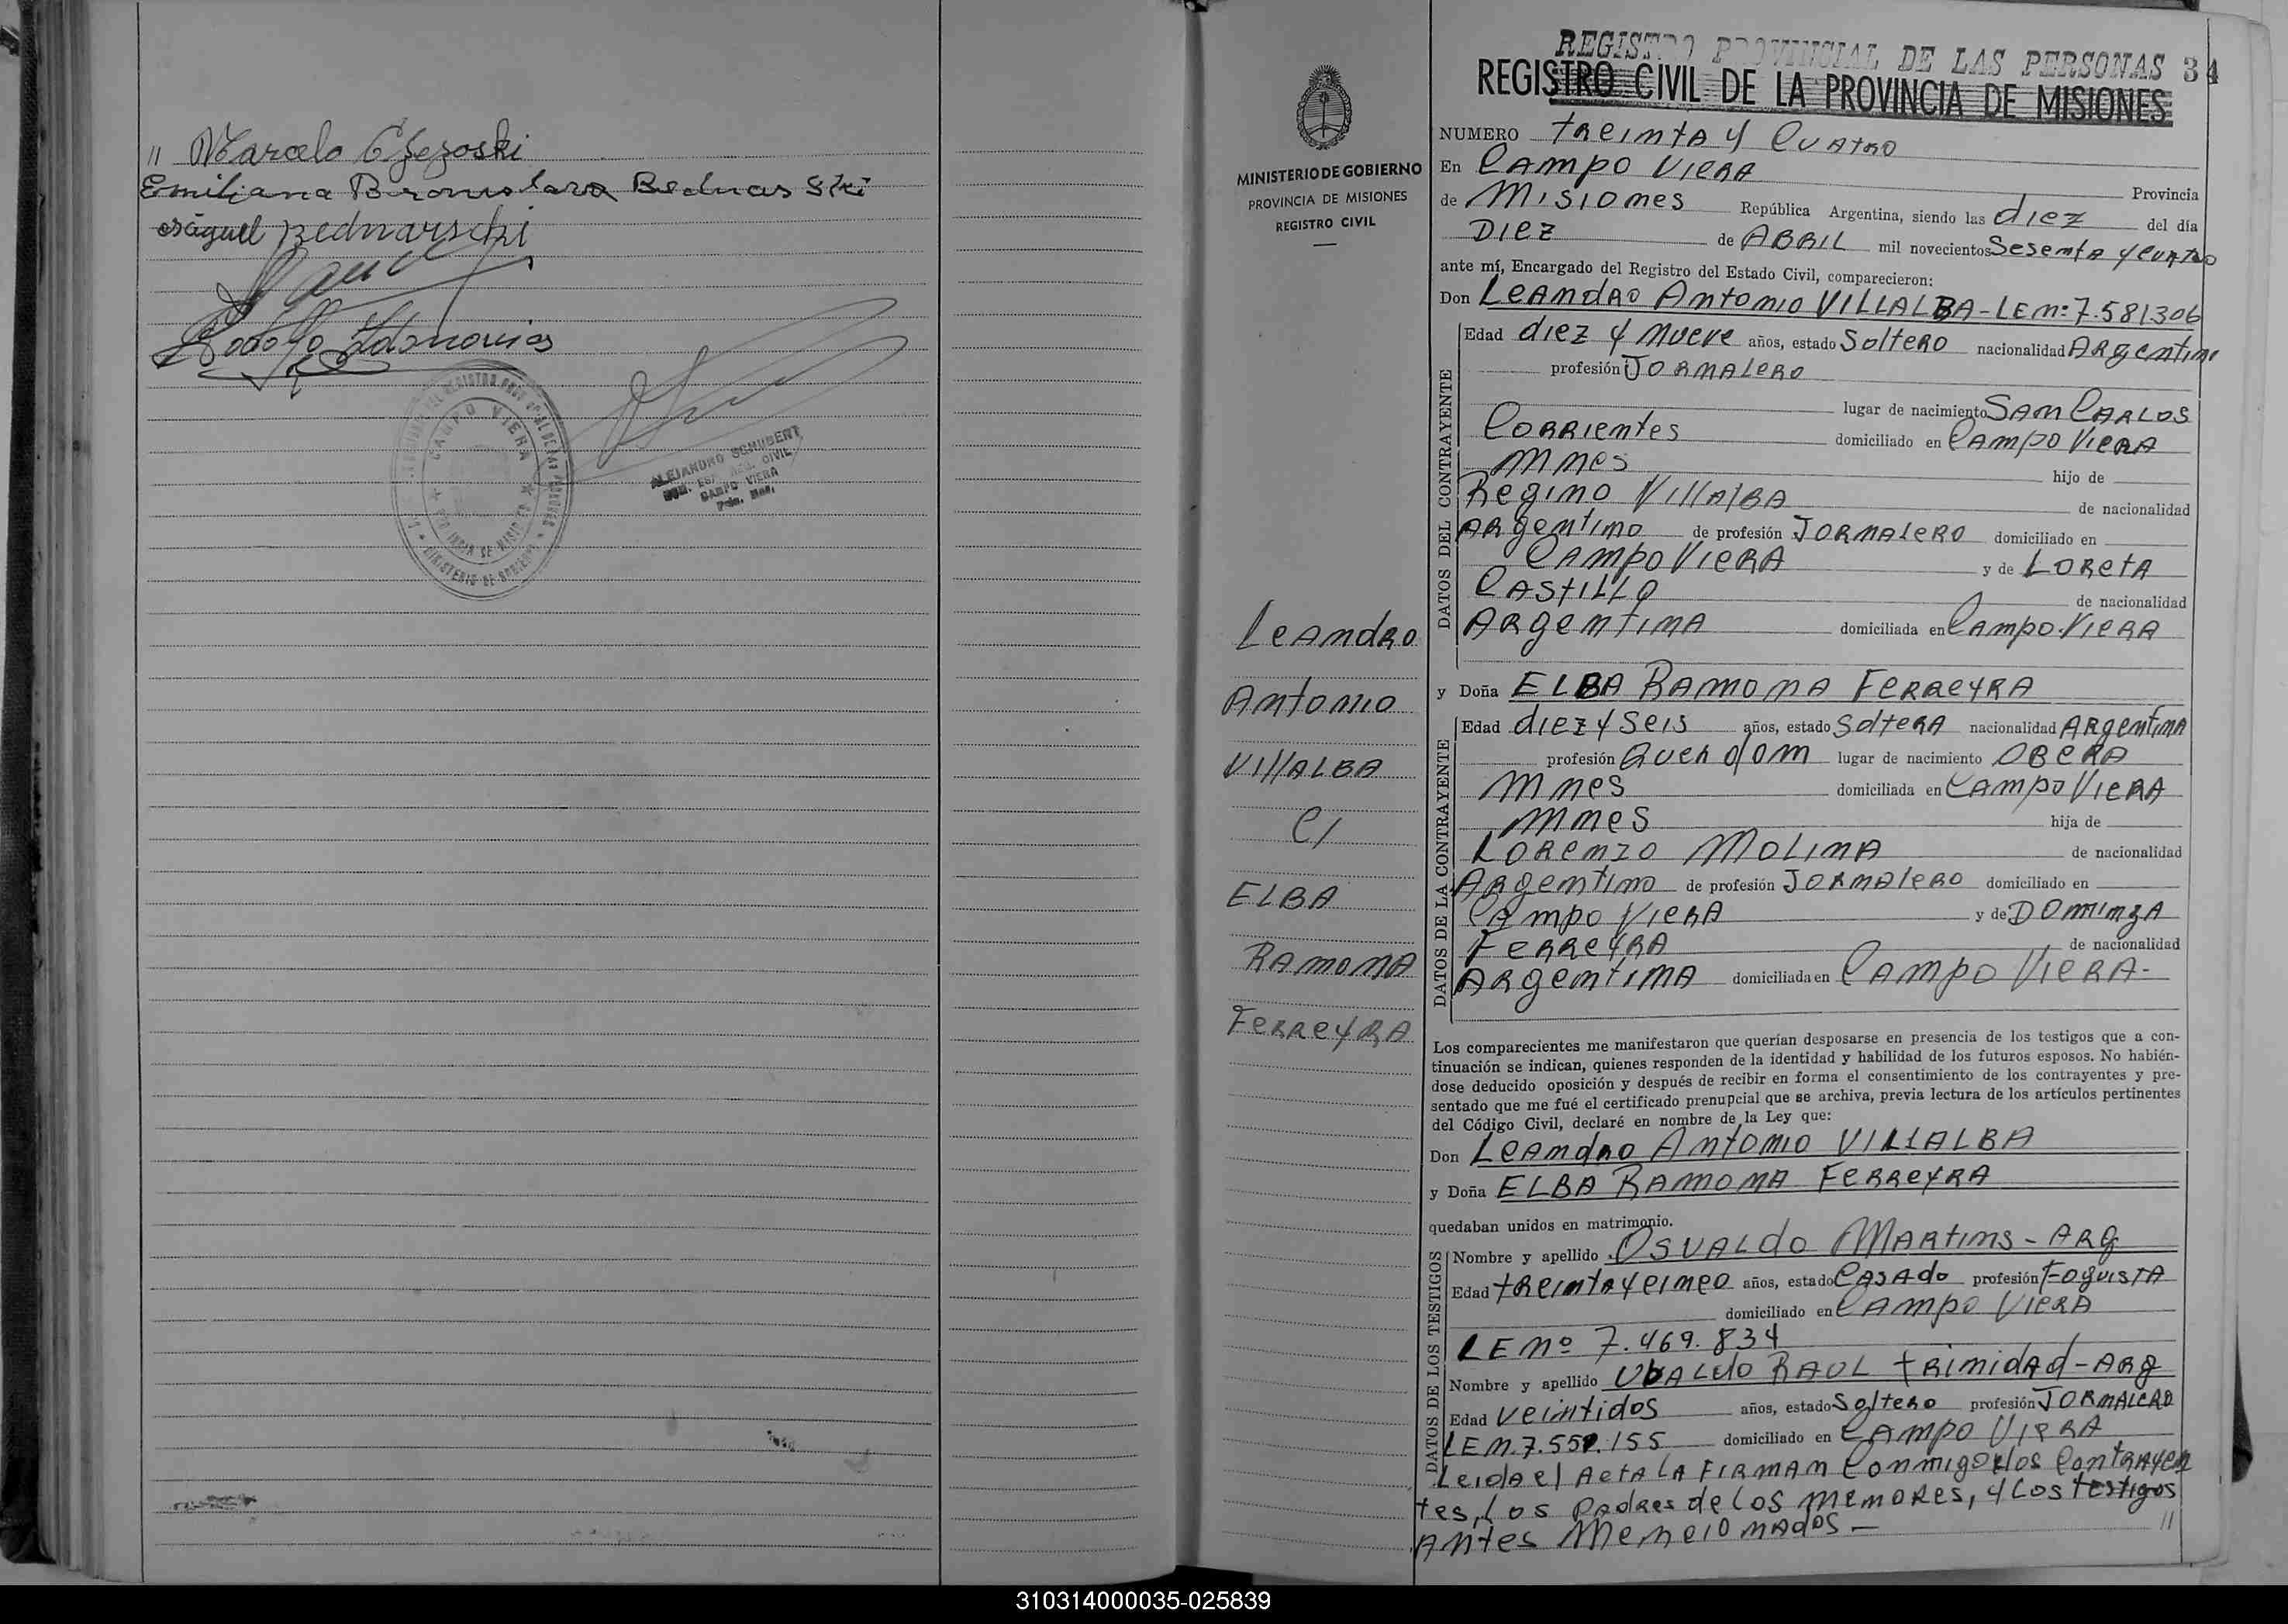 // Marcelo
Emiliana Bednarski
Bednarschi
CAMPO VIERA
MINISTERIO DE GOBIERNO
ALEJANDRO SCHUBERT
CAMPO VIERA
REGISTRO PROVINCIAL DE LAS PERSONAS 34
REGISTRO CIVIL DE LA PROVINCIA DE MISIONES
MINISTERIO DE GOBIERNO
PROVINCIA DE MISIONES
REGISTRO CIVIL
Leandro
Antonio
Villalba
c/
ELBA
Ramona
Ferreyra
NUMERO treinta y cuatro
En Campo Viera Provincia
de Misiones República Argentina, siendo las diez del día
Diez de ABRIL mil novecientos Sesenta y cuatro
ante mí, Encargado del Registro del Estado Civil, comparecieron:
Don Leandro Antonio VILLALBA - LE nº 7.581306
DATOS DEL CONTRAYENTE
Edad diez y nueve años, estado Soltero nacionalidad Argentino
profesión Jornalero
lugar de nacimiento San Carlos
Corrientes domiciliado en Campo Viera
Mnes hijo de
Regino Villalba de nacionalidad
Argentino de profesión Jornalero domiciliado en
Campo Viera y de Loreta
Castillo de nacionalidad
Argentina domiciliada en Campo Viera
y Doña ELBA Ramona Ferreyra
DATOS DE LA CONTRAYENTE
Edad diez y seis años, estado Soltera nacionalidad Argentina
profesión Queh dom lugar de nacimiento Obera
Mnes domiciliada en Campo Viera
Mnes hija de
Lorenzo Molina de nacionalidad
Argentino de profesión Jornalero domiciliado en
Campo Viera y de Dominga
Ferreyra de nacionalidad
Argentina domiciliada en Campo Viera-
Los comparecientes me manifestaron que querían desposarse en presencia de los testigos que a con-
tinuación se indican, quienes responden de la identidad y habilidad de los futuros esposos. No habién-
dose deducido oposición y después de recibir en forma el consentimiento de los contrayentes y pre-
sentado que me fué el certificado prenupcial que se archiva, previa lectura de los artículos pertinentes
del Código Civil, declaré en nombre de la Ley que:
Don Leandro Antonio VILLALBA
y Doña ELBA Ramona Ferreyra
quedaban unidos en matrimonio.
DATOS DE LOS TESTIGOS
Nombre y apellido Osvaldo Martins - Arg
Edad treinta y cinco años, estado Casado profesión Foguista
domiciliado en Campo Viera
LE nº 7.469.834
Nombre y apellido Ubaldo Raul Trinidad - Arg
Edad veintidos años, estado Soltero profesión Jornalero
LE n. 155 domiciliado en Campo Viera
Leida el Acta la firman conmigo los contrayen
tes, los padres de los menores, y los testigos
antes mencionados - //
310314000035-025839